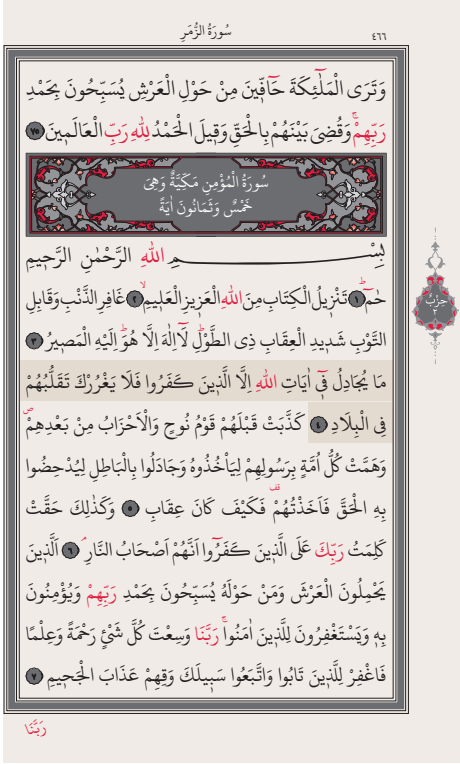 سُورَةُ الزُّمَرِ
٤٦٦
وَتَرَى الْمَلٰٓئِكَةَ حَٓافّ۪ينَ مِنْ حَوْلِ الْعَرْشِ يُسَبِّحُونَ بِحَمْدِ
رَبِّهِمْۚ وَقُضِيَ بَيْنَهُمْ بِالْحَقِّ وَق۪يلَ الْحَمْدُ لِلّٰهِ رَبِّ الْعَالَم۪ينَ ﴿٧٥﴾
سُورَةُ الْمُؤْمِنِ مَكِّيَّةٌ وَهِيَ
خَمْسٌ وَثَمَانُونَ اٰيَةً
بِسْمِ اللّٰهِ الرَّحْمٰنِ الرَّح۪يمِ
حٰمٓۜ ﴿١﴾ تَنْز۪يلُ الْكِتَابِ مِنَ اللّٰهِ الْعَز۪يزِ الْعَل۪يمِۙ ﴿٢﴾ غَافِرِ الذَّنْبِ وَقَابِلِ
التَّوْبِ شَد۪يدِ الْعِقَابِ ذِي الطَّوْلِۜ لَٓا اِلٰهَ اِلَّا هُوَۜ اِلَيْهِ الْمَص۪يرُ ﴿٣﴾
مَا يُجَادِلُ ف۪ٓي اٰيَاتِ اللّٰهِ اِلَّا الَّذ۪ينَ كَفَرُوا فَلَا يَغْرُرْكَ تَقَلُّبُهُمْ
فِي الْبِلَادِ ﴿٤﴾ كَذَّبَتْ قَبْلَهُمْ قَوْمُ نُوحٍ وَالْاَحْزَابُ مِنْ بَعْدِهِمْۖ
وَهَمَّتْ كُلُّ اُمَّةٍ بِرَسُولِهِمْ لِيَأْخُذُوهُ وَجَادَلُوا بِالْبَاطِلِ لِيُدْحِضُوا
بِهِ الْحَقَّ فَاَخَذْتُهُمْ۠ فَكَيْفَ كَانَ عِقَابِ ﴿٥﴾ وَكَذٰلِكَ حَقَّتْ
كَلِمَتُ رَبِّكَ عَلَى الَّذ۪ينَ كَفَرُٓوا اَنَّهُمْ اَصْحَابُ النَّارِۢ ﴿٦﴾ اَلَّذ۪ينَ
يَحْمِلُونَ الْعَرْشَ وَمَنْ حَوْلَهُ يُسَبِّحُونَ بِحَمْدِ رَبِّهِمْ وَيُؤْمِنُونَ
بِه۪ وَيَسْتَغْفِرُونَ لِلَّذ۪ينَ اٰمَنُواۚ رَبَّنَا وَسِعْتَ كُلَّ شَيْءٍ رَحْمَةً وَعِلْمًا
فَاغْفِرْ لِلَّذ۪ينَ تَابُوا وَاتَّبَعُوا سَب۪يلَكَ وَقِهِمْ عَذَابَ الْجَح۪يمِ ﴿٧﴾
رَبَّنَا
حِزْبٌ
٢